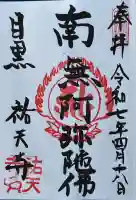 奉拝
令和七年四月十八日
南無阿弥陀佛
目黒
祐天寺